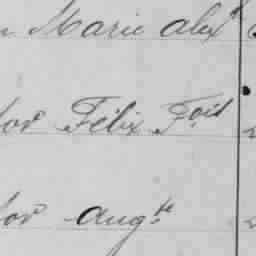 Marie Alex
for Félix Foit
for Augte